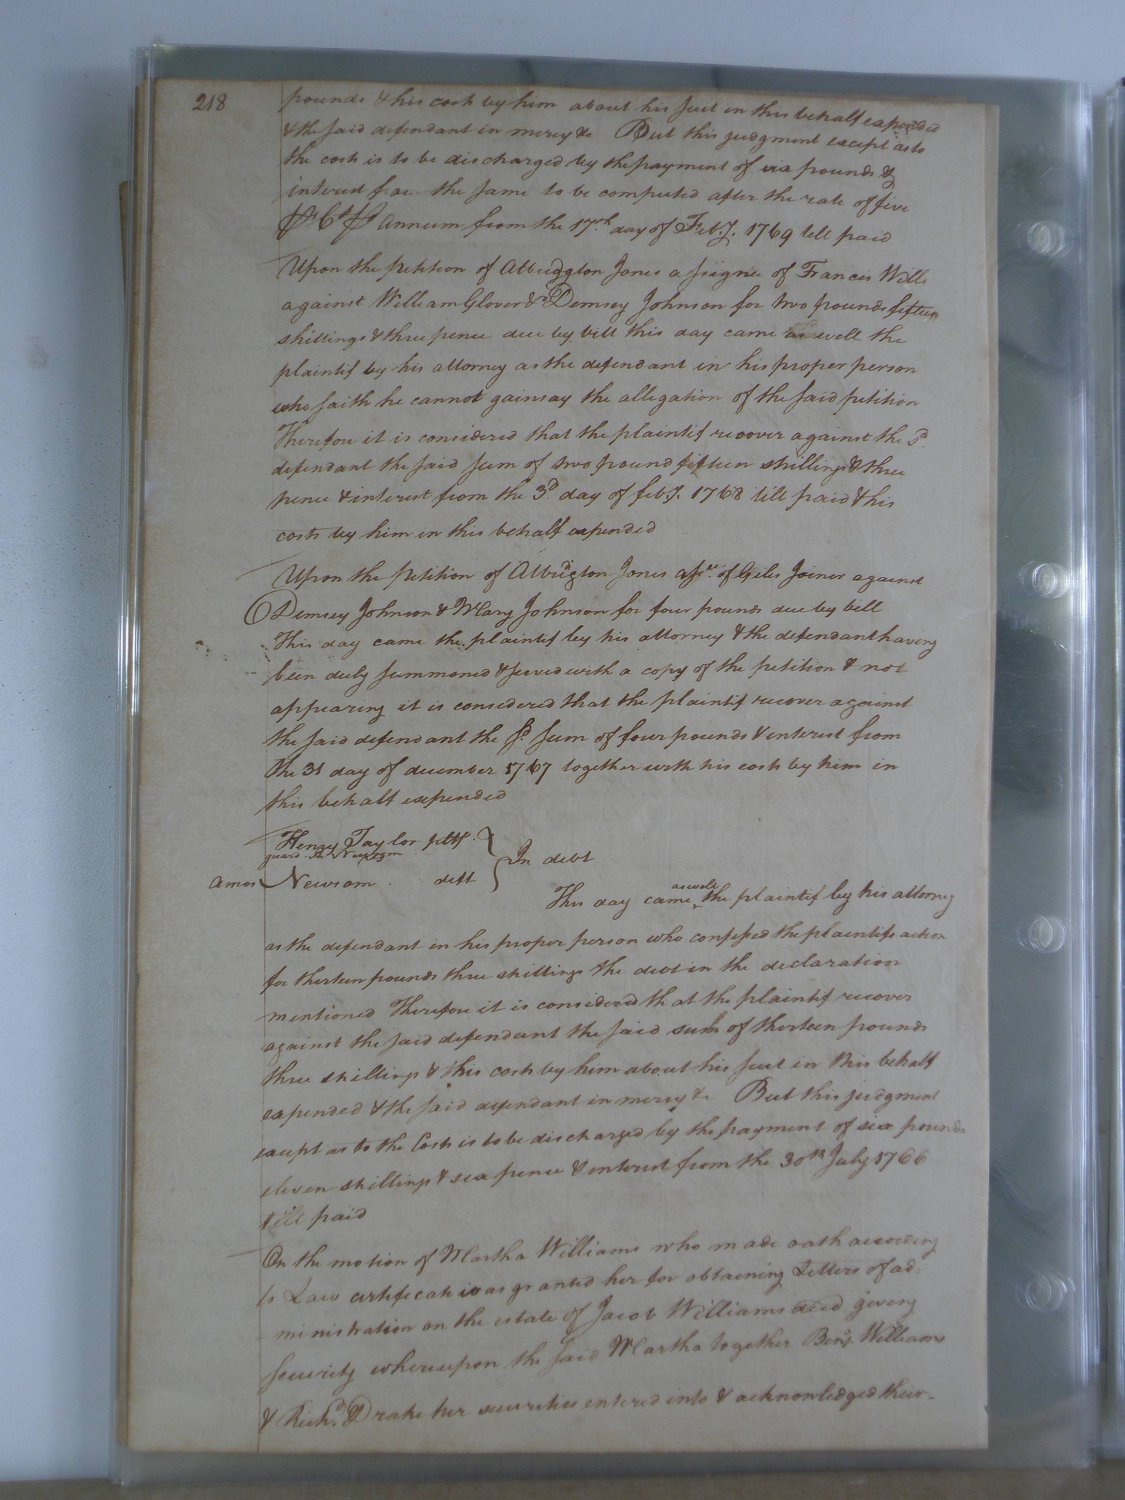 218
pounds & his costs by him about his suit in this behalf expended
& the said defendant in mercy &c But this judgment except as to
the costs is to be discharged by the payment of six pounds &
interest from the same to be computed after the rate of five
Pr Ct Pr annum from the 17th day of Feby. 1769 till paid
Upon the petition of Albridgton Jones assignee of Frances Wills
against William Glover & Demsey Johnson for two pounds fifteen
shillings & three pence due by bill this day came as well the
plaintif by his attorney as the defendant in his proper person
who saith he cannot gainsay the allegation of the said petition
Therefore it is considered that the plaintif recover against the sd.
defendant the said sum of two pound fifteen shillings & three
pence & interest from the 3d day of feby. 1768 till paid & his
costs by him in this behalf expended
Upon the petition of Albridgton Jones assee. of Giles Joiner against
Demsey Johnson & Mary Johnson for four pounds due by bill
This day came the plaintif by his attorney & the defendant having
been duly summoned & served with a copy of the petition & not
appearing it is considered that the plaintif recover against
the said defendant the sd. sum of four pounds & interest from
the 31 day of december 1767 together with his costs by him in
this behalf expended
Henry Taylor pltf.
Newsom
In debt
Amos Newsom deft
as well
This day came the plaintif by his attorney
as the defendant in his proper person who confessed the plaintifs action
for thirteen pounds three shillings the debt in the declaration
mentioned Therefore it is considered that the plaintif recover
against the said defendant the said sum of thirteen pounds
three shillings & his costs by him about his suit in this behalf
expended & the said defendant in mercy &c But this judgment
except as to the Costs is to be discharged by the payment of six pounds
eleven shillings & six pence & interest from the 30th July 1766
till paid
On the motion of Martha Williams who made oath according
to Law certificate was granted her for obtaining Letters of ad-
ministration on the estate of Jacob Williams deced giving
security whereupon the said Martha together Benj. Williams
& Richd. Drake her securities entered into & acknowledged their